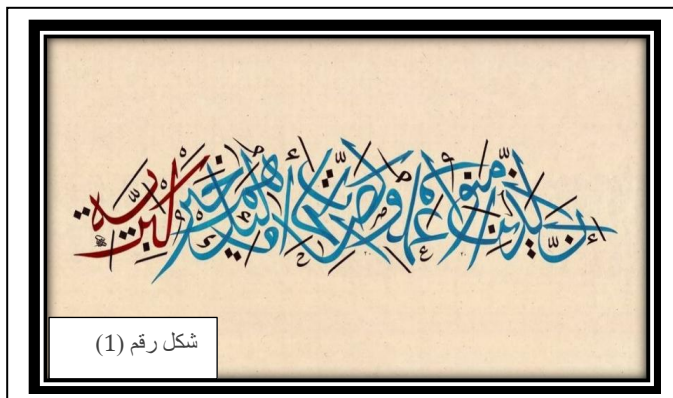 إن الذين آمنوا وعملوا الصالحات أولئك هم خير البرية
شكل رقم (1)